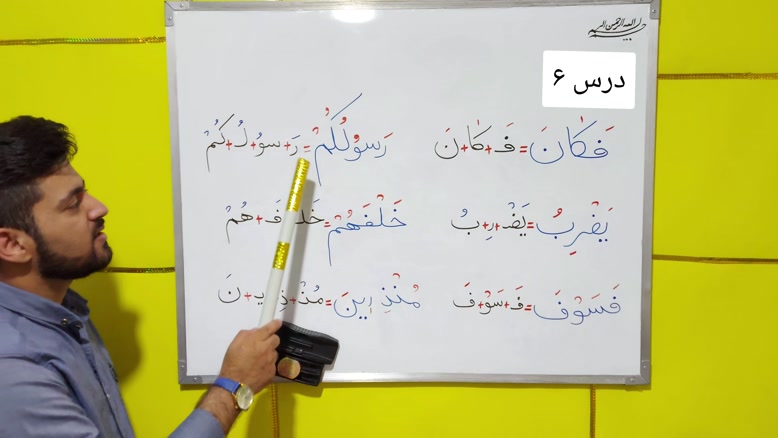 بسم الله الرحمن الرحیم
درس ۶
فَکٰانَ = فَ + کٰا + نَ
رَسوُلُکُمْ = رَ + سوُ + لُ + کُمْ
یَضْرِبُ = یَضْ + رِ + بُ
خَلْفَهُمْ = فَ + هُمْ
فَسَوْفَ = فَ + سَوْ + فَ
مُنْذِرینَ = مُنْ + ذِ + نَ